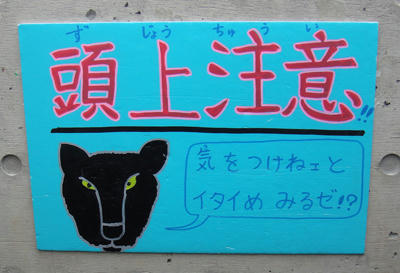 ず じょう ちゅう い
頭上注意!!
気をつけねェと
イタイめ みるゼ!?